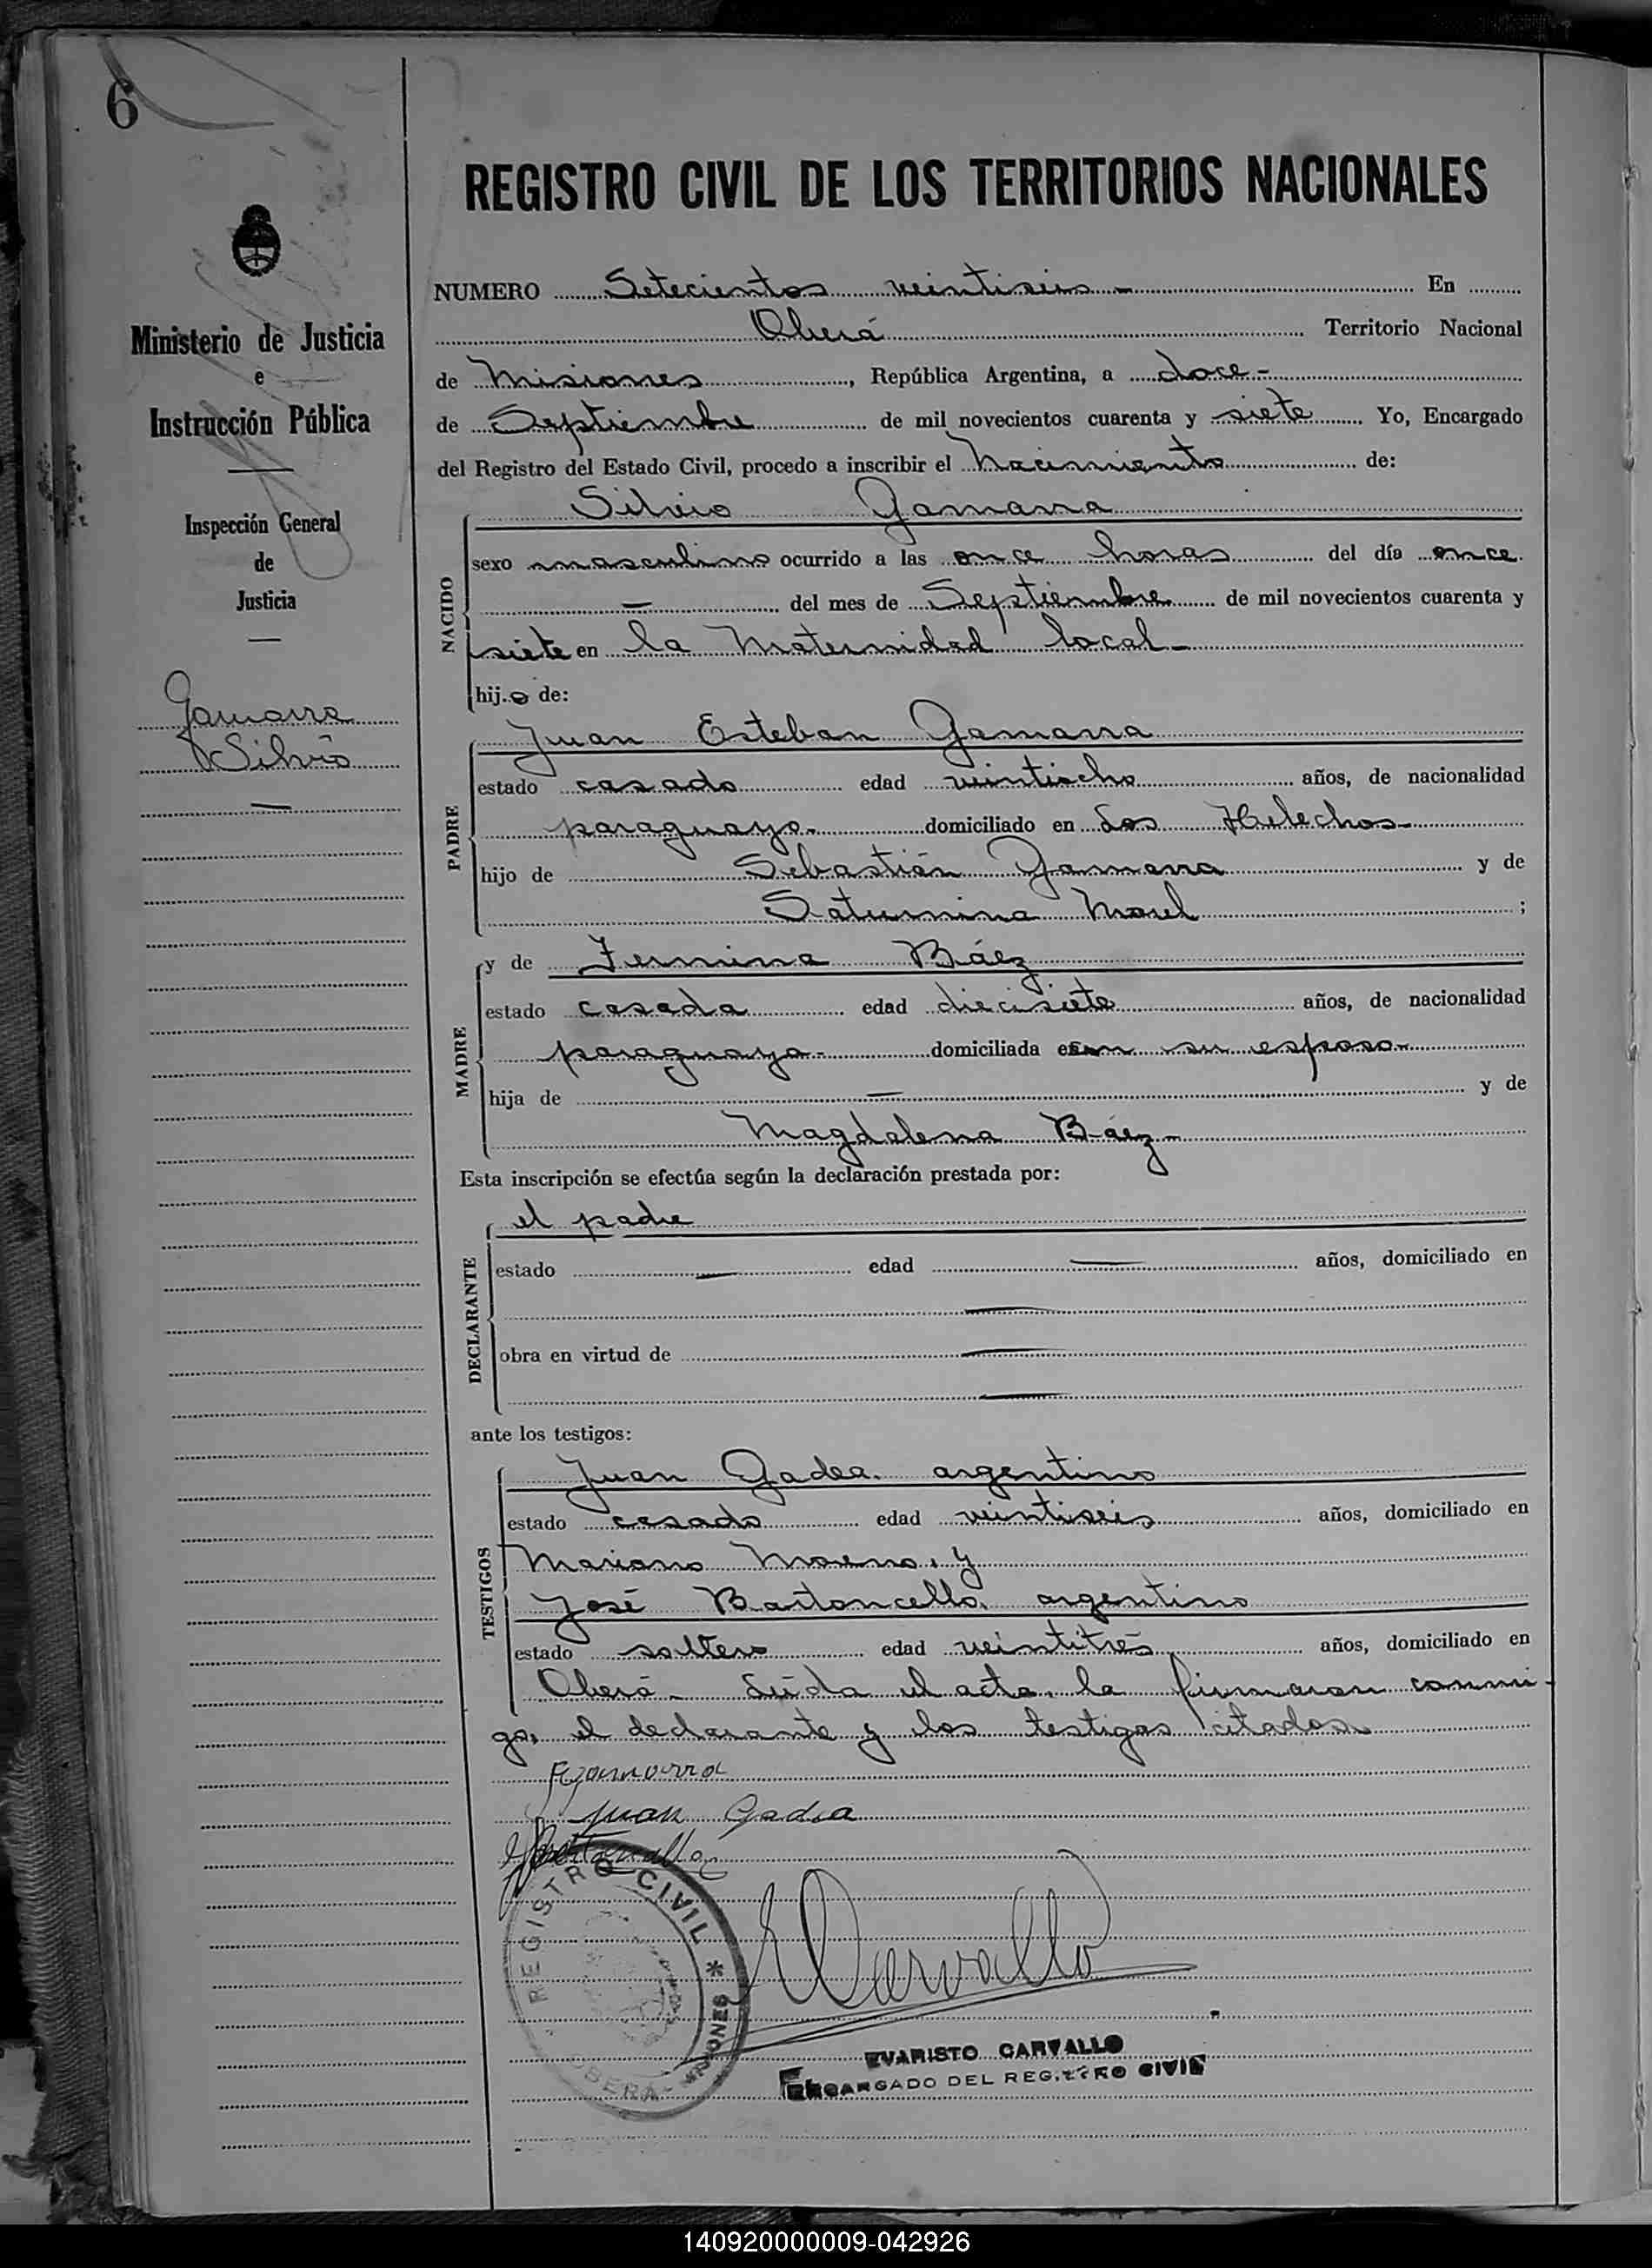 6
REGISTRO CIVIL DE LOS TERRITORIOS NACIONALES
Ministerio de Justicia
e
Instrucción Pública
Inspección General
de
Justicia
Gamarra
Silvio
NUMERO Setecientos veintiseis - En
Oberá Territorio Nacional
de Misiones, República Argentina, a doce -
de Septiembre de mil novecientos cuarenta y siete Yo, Encargado
del Registro del Estado Civil, procedo a inscribir el Nacimiento de:
NACIDO
Silvio Gamarra
sexo masculino ocurrido a las once horas del día once
— del mes de Septiembre de mil novecientos cuarenta y
siete en la Maternidad local -
hijo de:
PADRE
Juan Esteban Gamarra
estado casado edad veintiocho años, de nacionalidad
paraguayo - domiciliado en Los Helechos -
hijo de Sebastián Gamarra y de
Saturnina Morel ;
MADRE
y de Fermina Báez
estado casada edad diecisiete años, de nacionalidad
paraguaya - domiciliada con su esposo -
hija de — y de
Magdalena Báez -
Esta inscripción se efectúa según la declaración prestada por:
DECLARANTE
el padre
estado — edad — años, domiciliado en
—
obra en virtud de —
—
ante los testigos:
TESTIGOS
Juan Gadea, argentino
estado casado edad veintiseis años, domiciliado en
Mariano Moreno, y
José Bartoncello, argentino
estado soltero edad veintitrés años, domiciliado en
Oberá - Leída el acta, la firmaron conmi-
go, el declarante y los testigos citados
Gamarra
Juan Gadea
REGISTRO CIVIL * OBERA - MISIONES *
ECarvallo
EVARISTO CARVALLO
ENCARGADO DEL REGISTRO CIVIL
140920000009-042926